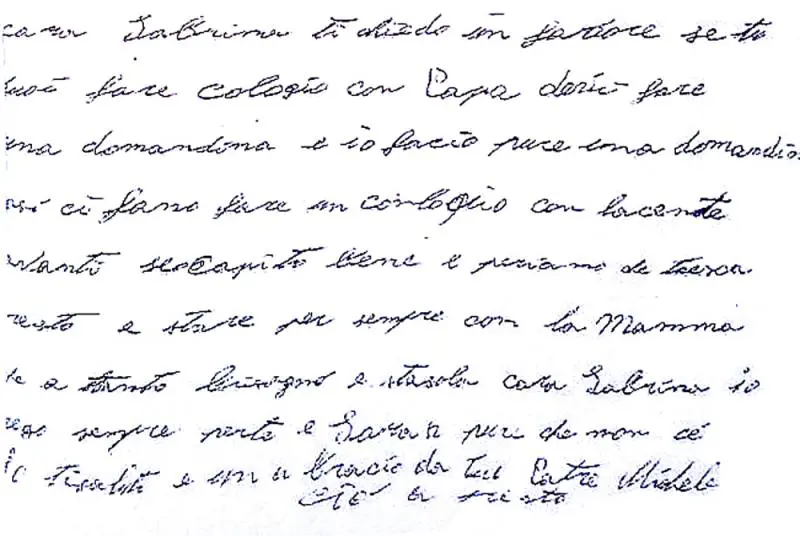 cara Sabrina ti chiedo un favore se tu
puoi fare cologio con Papa devi fare
una domandina e io facio pure una domandin
ci fano fare un conloqio con
avanti se o capito bene e periamo de
presto e stare per sempre con la Mamma
a tanto bisogno e sta sola cara Sabrina io
sempre per te e Sarah pure che non cé
ti saluto e un a bracio da tuo Patre Michele
ciò a presto